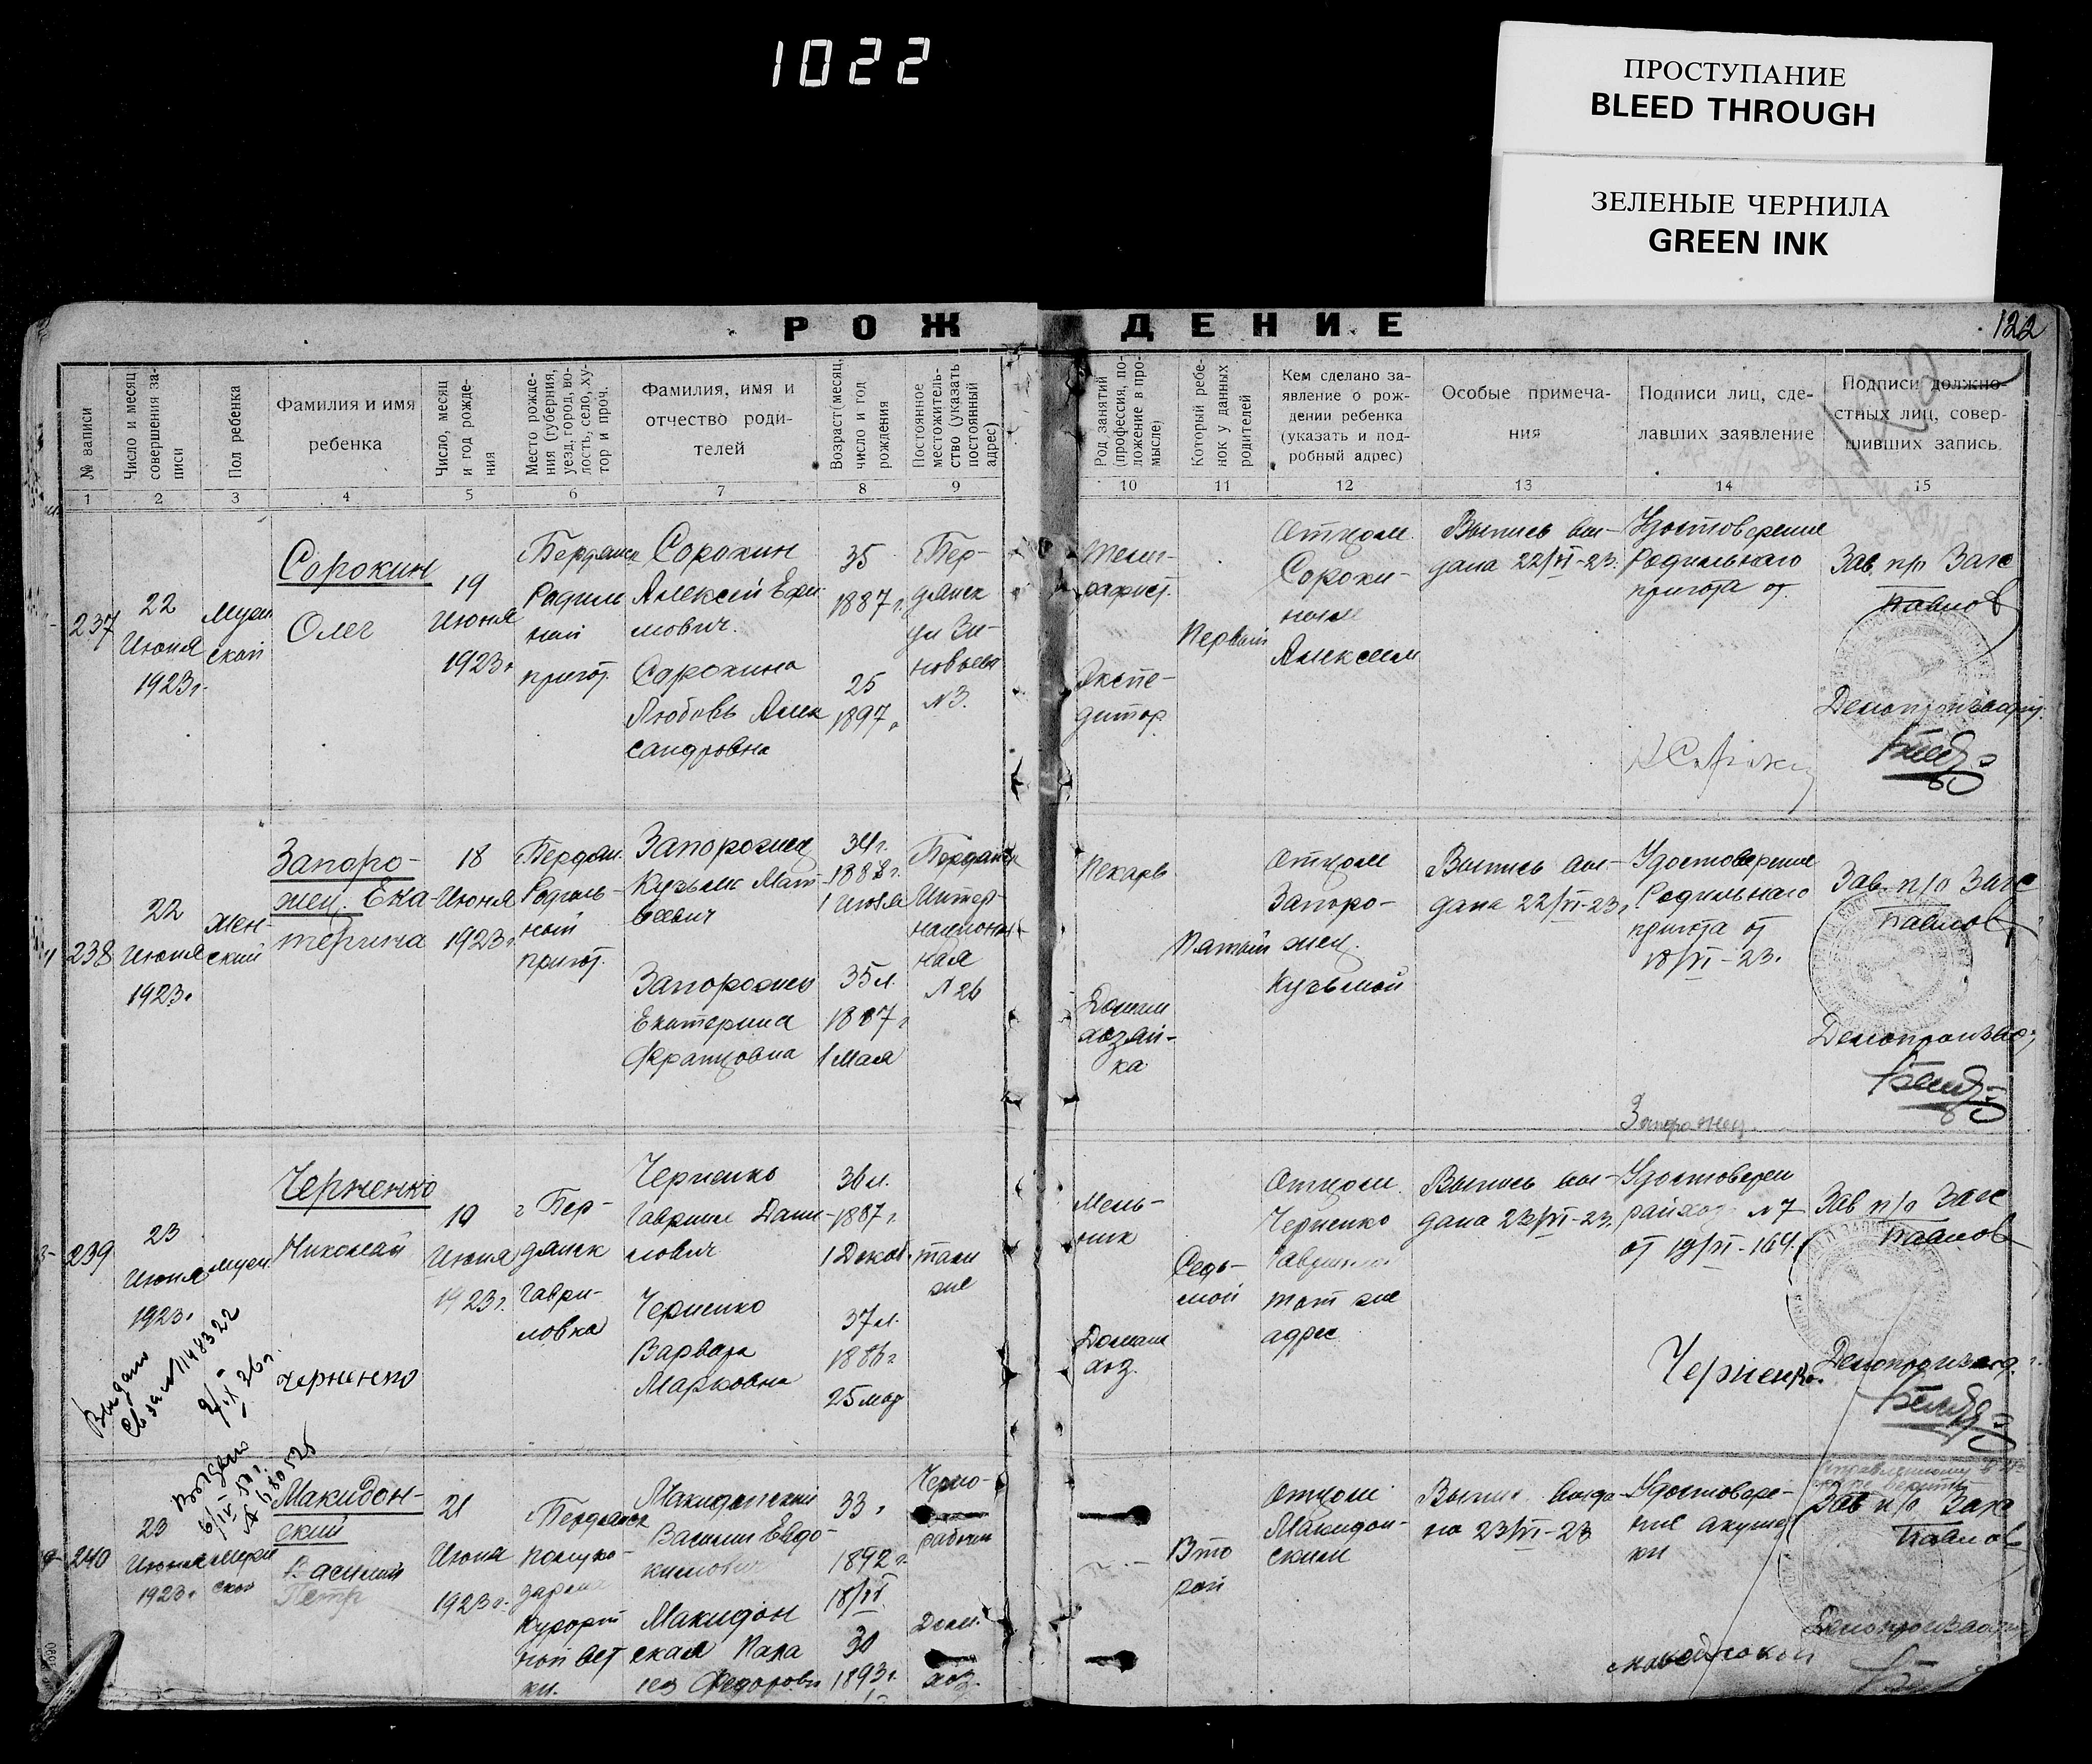 1022
ПРОСТУПАНИЕ
BLEED THROUGH
ЗЕЛЕНЫЕ ЧЕРНИЛА
GREEN INK
РОЖДЕНИЕ
122
№ записи
Число и месяц
совершения за-
писи
Пол ребенка
Фамилия и имя
ребенка
Число, месяц
и год рожде-
ния
Место рожде-
ния (губерния,
уезд, город, во-
лость, село, ху-
тор и проч.
Фамилия, имя и
отчество роди-
телей
Возраст (месяц,
число и год
рождения
Постоянное
местожитель-
ство (указать
постоянный
адрес)
Род занятий
(профессия, по-
ложение в про-
мысле)
Который ребе-
нок у данных
родителей
Кем сделано за-
явление о рож-
дении ребенка
(указать и под-
робный адрес)
Особые примеча-
ния
Подписи лиц, сде-
лавших заявление
Подписи должно-
стных лиц, совер-
шивших запись
1 2 3 4 5 6 7 8 9 10 11 12 13 14 15
237
22
Июня
1923г.
Муж
ской
Сорокин
Олег
19
Июня
1923г
г Бердянск
Родиль
ный
приют.
Сорокин
Алексей Ефи
мович.
Сорокина
Любовь Алек
сандровна
35
1887 г.
25
1897 г
г Бер-
дянск
ул Зи-
новьева
№3.
Экспе-
дитор
Первый
Отцом
Сороки-
ным
Алексеем
Выпись вы-
дана 22/VI-23.
Удостоверение
Родильного
приюта от
Зав. п/о Загс
Павлов
Делопроизвод
238
22
Июня
1923г
Жен-
ский
Запоро-
жец. Ека-
терина
18
Июня
1923г
г Бердян.
Родиль-
ный
приют.
Запорожец
Кузьма Мат-
веевич
Запорожец
Екатерина
Францовна
34г.
1888г.
1 июля
35л.
1887 г
1 Мая
Бердянск
Интер-
националь-
ная
№26
Пекарь
Домаш
хозяй-
ка
Пятый
Отцом
Запоро-
жец.
Кузьмой
Выпись вы-
дана 22/VI-23г.
Удостоверение
Родильного
приюта от
18/VI-23.
Запорожец
Зав. п/о Загс
Павлов
Делопроизвод
239
23
Июня
1923г
муж
Черненко
Николай
Черненко
19
Июня
1923г.
г Бер-
дянск
Гаври-
ловка
Черненко
Гавриил Дани-
лович
Черненко
Варвара
Марковна
36л.
1887 г.
1 Декаб
37л.
1886г
25 мар
там
же
Мель-
ник
Домаш
хоз.
Седь-
мой
Отцом
Черненко
Гавриилом
тот же
адрес
Выпись вы-
дана 23/VI-23.
Удостоверен
№7
от 19/VI-164.
Черненко
Зав п/о Загс
Павлов
Делопроизвод
Выдано
св за №1148322
Выдано
240
23
Июня
1923г
Муж
ской
Макидон-
ский
Василий
Петр
21
Июня
1923г.
г Бердянск
Курорт
Макидонский
Василий Евдо-
кимович
Макидон
ская Пела
гея Федоровн
33 г
1892 г.
18/VI
30
1893г.
Черно-
рабочий
Дом.
хоз.
Вто
рой
Отцом
Макидон-
ским
Выпись выда-
на 23/VI-23
Удостовере-
ние акушер
ки
Зав п/о Загс
Павлов
Делопроизвод